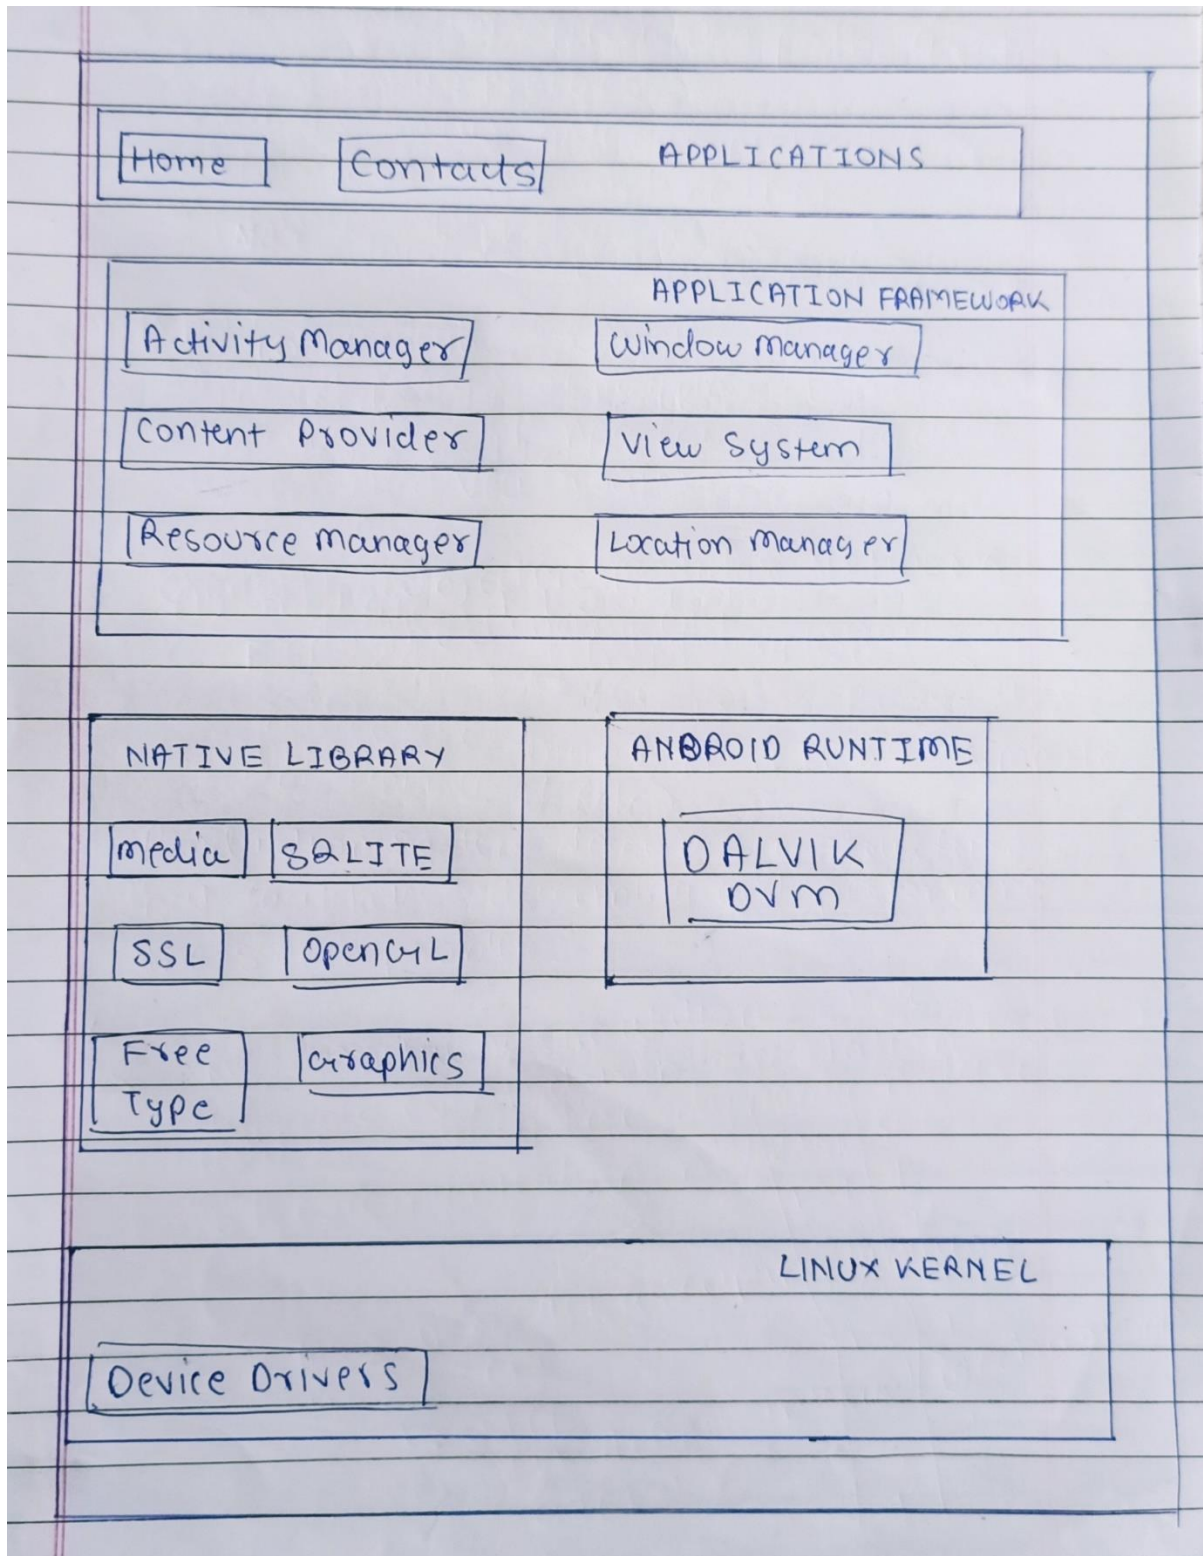 Home Contacts APPLICATIONS
APPLICATION FRAMEWORK
Activity Manager Window manager
Content Provider View System
Resource manager Location Manager
NATIVE LIBRARY
media SQLITE
SSL OpenGL
Free Graphics
Type
ANDROID RUNTIME
DALVIK
DVM
LINUX KERNEL
Device Drivers